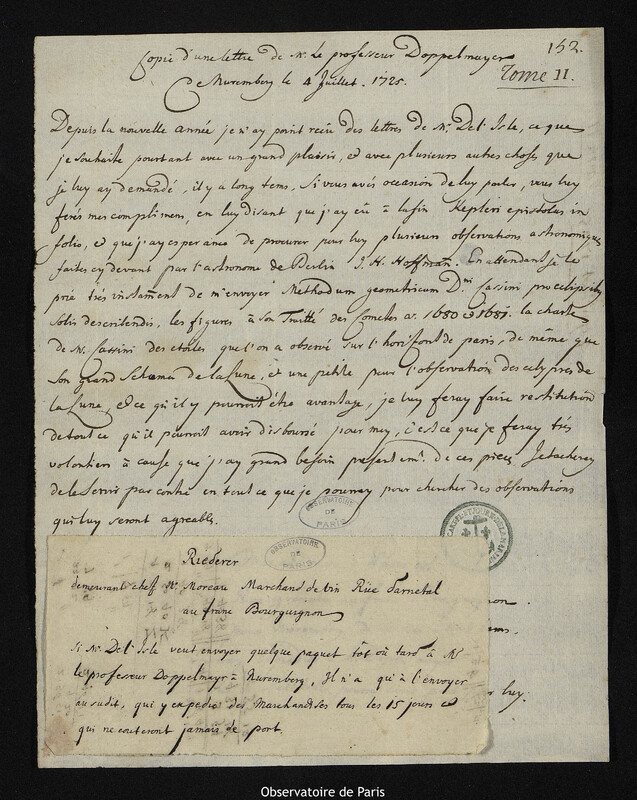 152.
Tome II.
Copie d'une lettre de Mr. Le professeur Doppelmayer
Ce Nuremberg le 4 Juillet. 1725.
Depuis la nouvelle année je n'ay point recû des lettres de Mr. Del'Isle, ce que
je souhaite pourtant avec un grand plaisir, & avec plusieurs autres choses que
je luy ay demandé, il y a long tems, Si vous avés occasion de luy parler, vous luy
ferés mes complimens, en luy disant que j'ay eû à la fin Kepleri epistolas in
folio, & que j'ay esperance de procurer pour luy plusieurs observations astronomiques
faites cy devant par l'astronome de Berlin J. H. Hoffman. En attendant je le
prie très instament de m'envoyer Methodum geometricum Dni Cassini pro eclipsibus
solis describendis, les figures à son Traitté des Cometes a. 1680 & 1681. la charte
de Mr. Cassini des etoiles que l'on a observé sur l'horisont de paris, de même que
son grand Schema de la Lune, et une petite pour l'observation des eclypses de
la Lune, & ce qu'il y pourroit être avantage, je luy feray faire restitution
de tout ce qu'il pourroit avoir disboursé pour moy, c'est ce que je feray très
volontiers à cause que j'ay grand besoin presentemt. de ces pieces Je tacheray
de le servir par contre en tout ce que je pourray pour chercher des observations
qui luy seront agreables.
OBSERVATOIRE DE PARIS
OBSERVATOIRE DE PARIS
Riederer
demeurant chez Mr. Moreau Marchand de vin Rüe Darnetal
au franc Bourguignon
Si Mr. Del'Isle veut envoyer quelque paquet tôt où tard à Mr
le professeur Doppelmayr à Nuremberg, Il n'a qu'à l'envoyer
au susdit, qui y expedie des Marchandises tous les 15 jours &
qui ne couteront jamais de port.
luy.
Observatoire de Paris